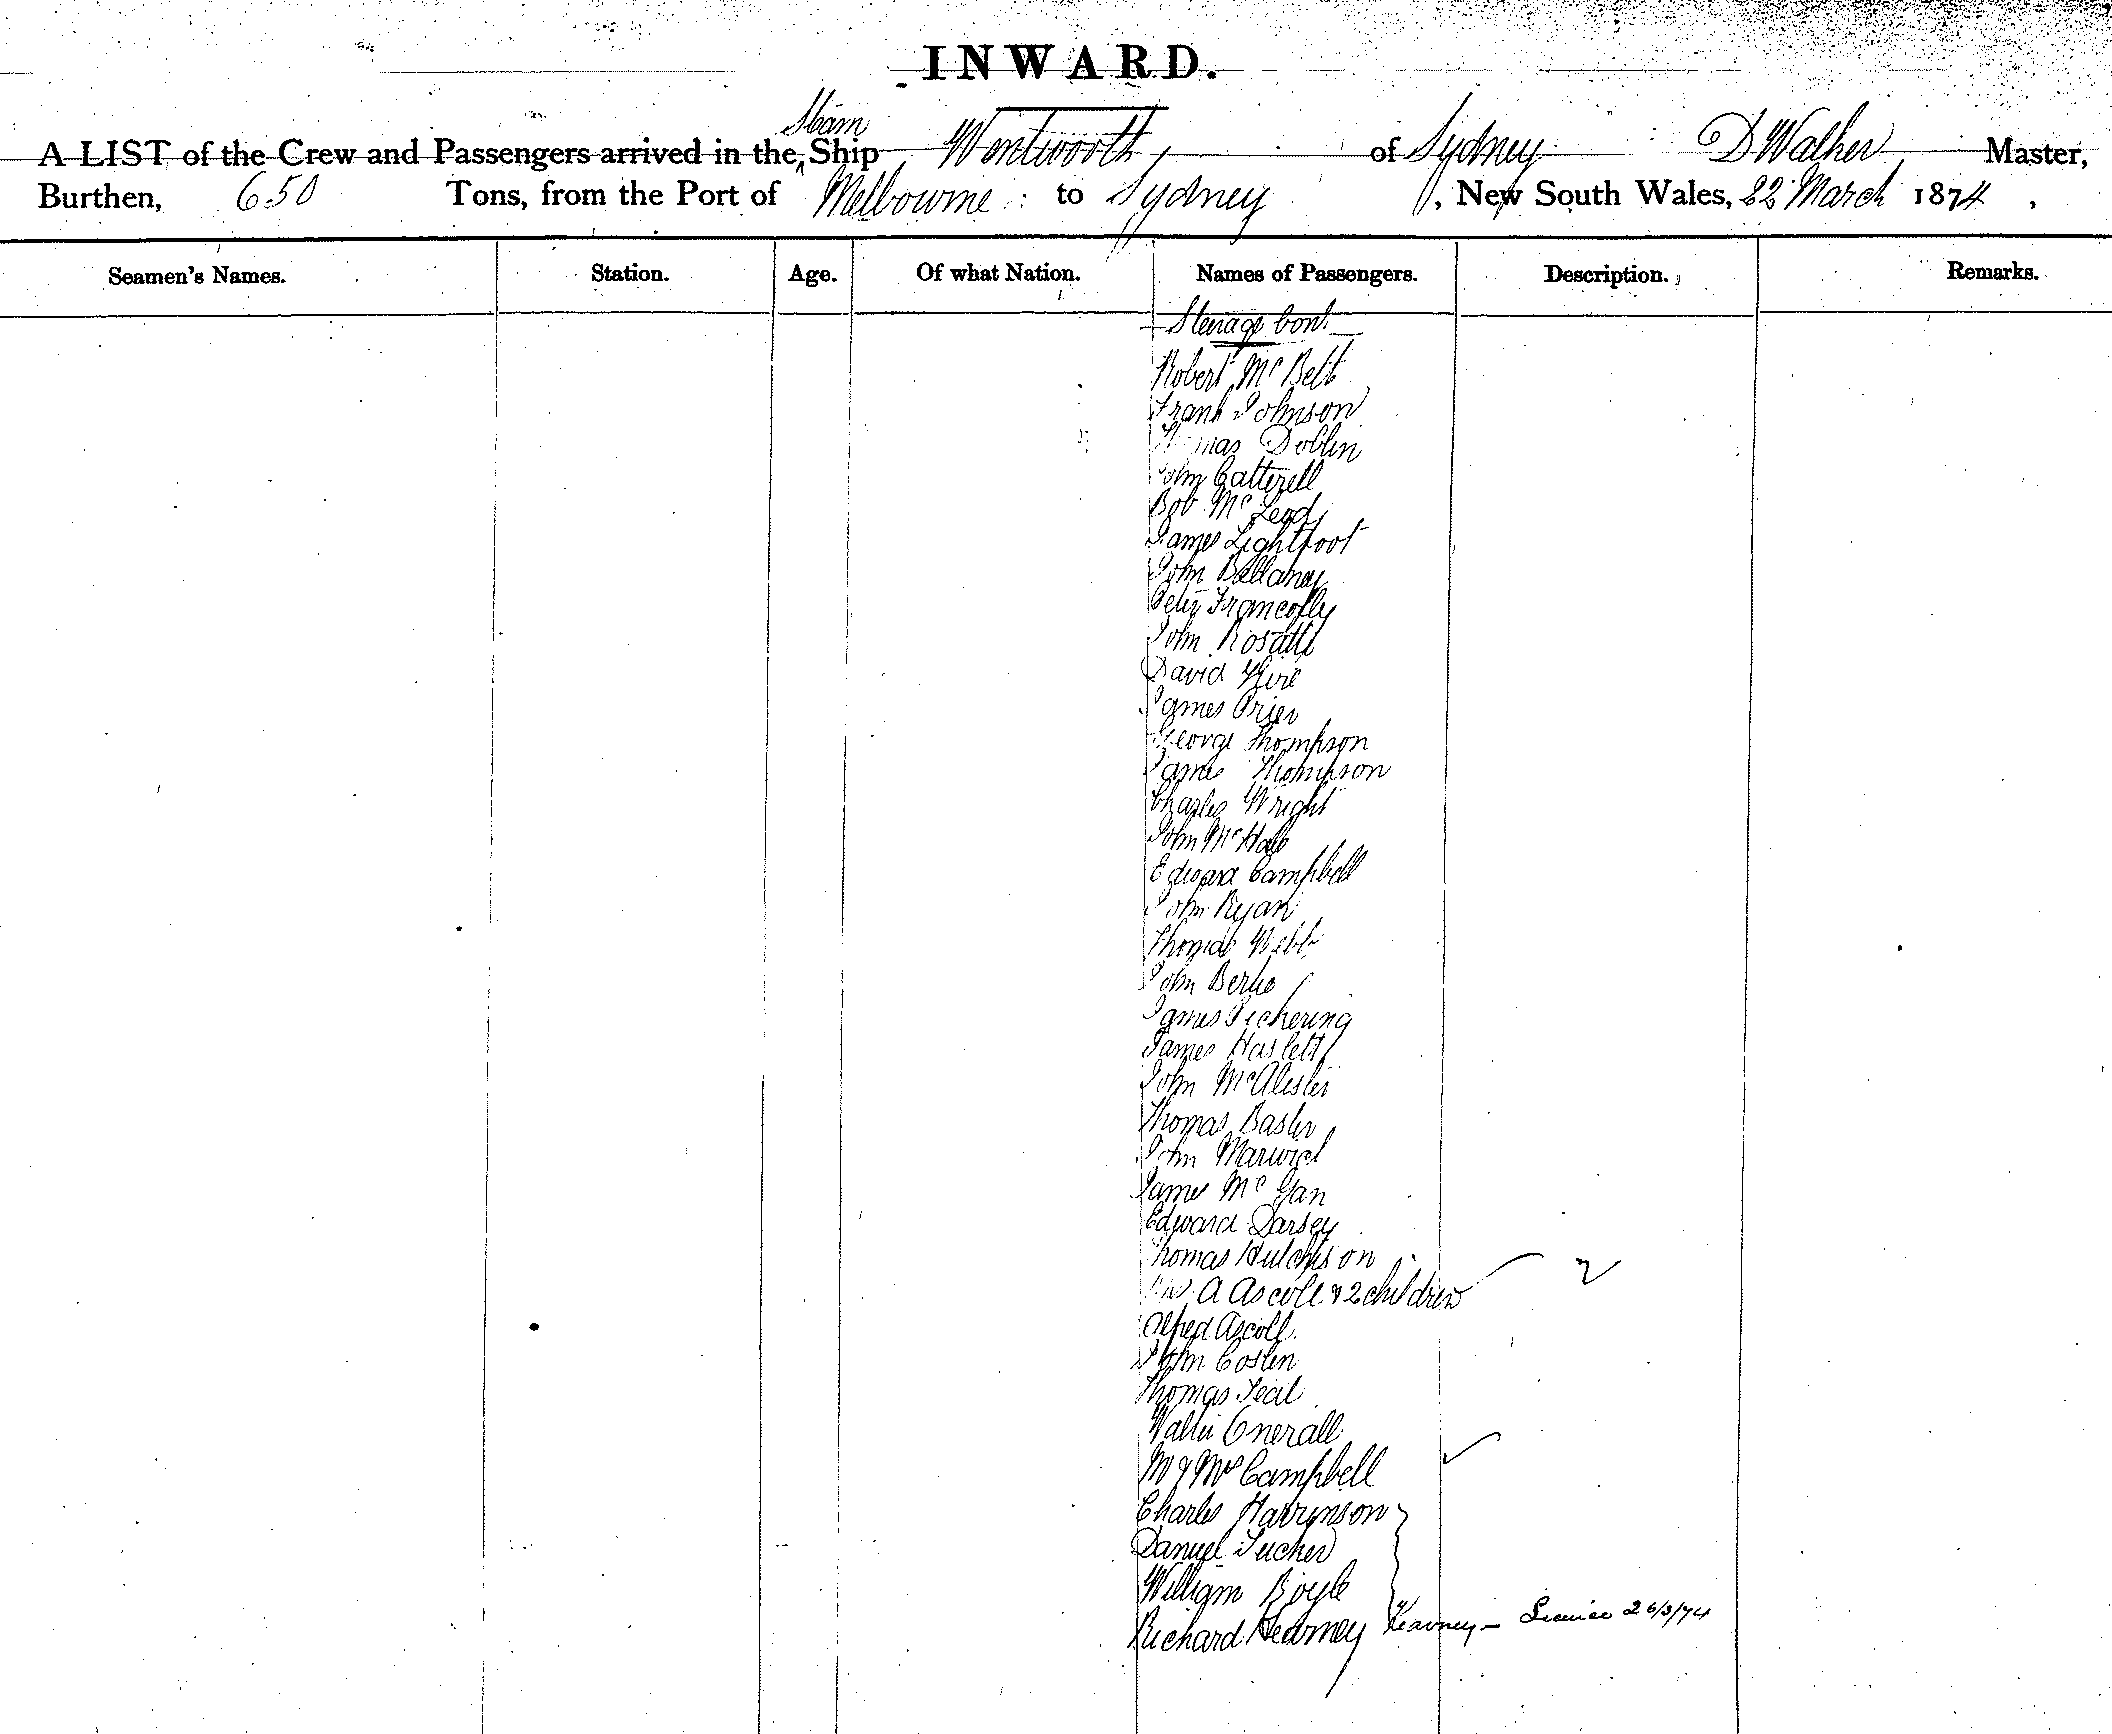 INWARD.
Steam
A LIST of the Crew and Passengers arrived in the Ship Wentworth of Sydney D Walker Master,
Burthen, 650 Tons, from the Port of Melbourne to Sydney, New South Wales, 22 March 1874,
Seamen's Names. Station. Age. Of what Nation. Names of Passengers. Description. Remarks.
Steerage Cont.
Robert McBelt
Frank Johnson
Thomas Doblin
John Catterell
Bob McLeod
James Lightfoot
John Bellaney
Peter
John Rosatti
David
James Prier
George Thompson
James Thompson
Charles Wright
John McHale
Edward Campbell
John Ryan
Thomas Webb
John Berke
James Pickering
James Haslett
John McAlister
Thomas Basler
John Marwick
James McGan
Edward Darsey
Thomas Hutchison
Mrs A Ascoll & 2 children
Alfred Ascoll
John Coslen
Thomas Teal
Walter Enerall
Mr & Mrs Campbell
Charles Harrynson
Daniel Tucker
William Boyle
Richard Hearney Kearney - 26/3/74